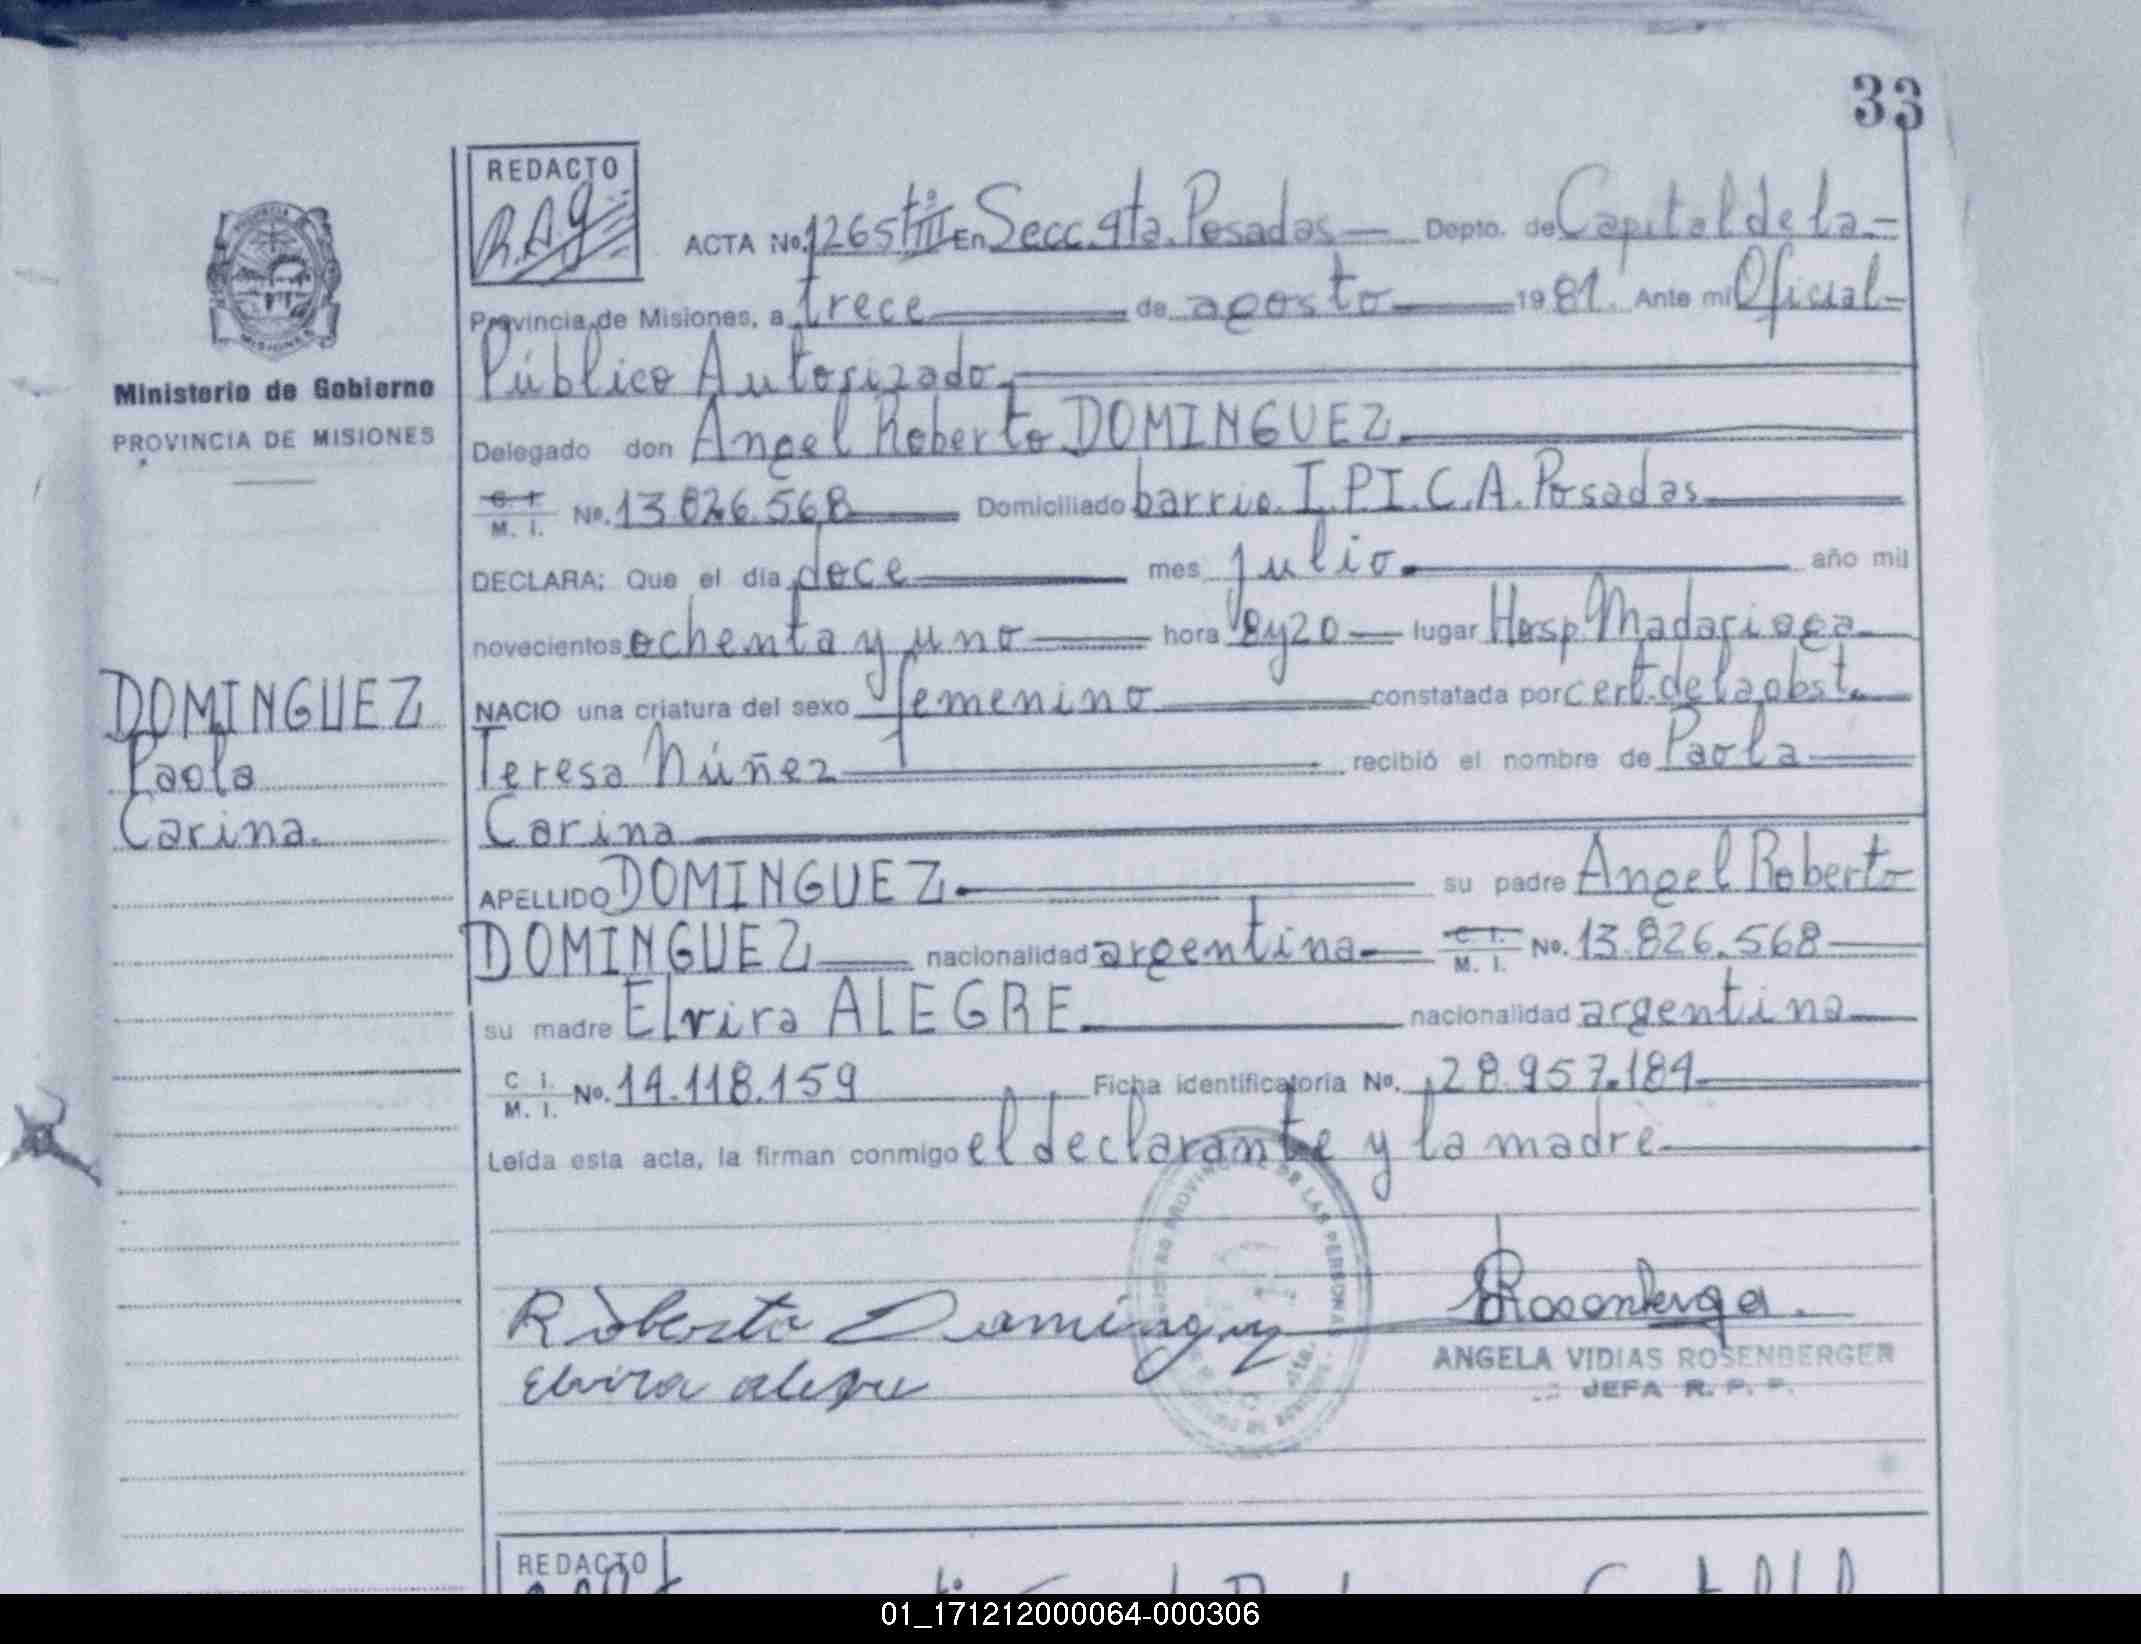 33
REDACTO
R.A.g
ACTA No. 1265 tº III En Secc. 4ta. Posadas Depto. de Capital de la
Provincia de Misiones, a trece de agosto 1981. Ante mi Oficial
Público Autorizado
Ministerio de Gobierno
PROVINCIA DE MISIONES
Delegado don Angel Roberto DOMINGUEZ
C. I. M. I. No. 13.826.568 Domiciliado barrio I.P.I.C.A. Posadas
DECLARA: Que el día doce mes julio año mil
novecientos ochenta y uno hora 8y20 lugar Hosp. Madariaga
NACIO una criatura del sexo femenino constatada por cert. de la obst.
Teresa Núñez recibió el nombre de Paola
Carina
DOMINGUEZ
Paola
Carina.
APELLIDO DOMINGUEZ su padre Angel Roberto
DOMINGUEZ nacionalidad argentina C. I. M. I. No. 13.826.568
su madre Elvira ALEGRE nacionalidad argentina
C. I. M. I. No. 14.118.159 Ficha identificatoria No. 28.957.184
Leída esta acta, la firman conmigo el declarante y la madre
Roberto Dominguez
Rosenberger
Elvira alegre
ANGELA VIDIAS ROSENBERGER
JEFA R. P. P.
DE LAS PERSONAS
REDACTO
01_171212000064-000306